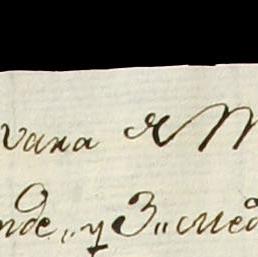 vara de M
nde,, y 3,, med